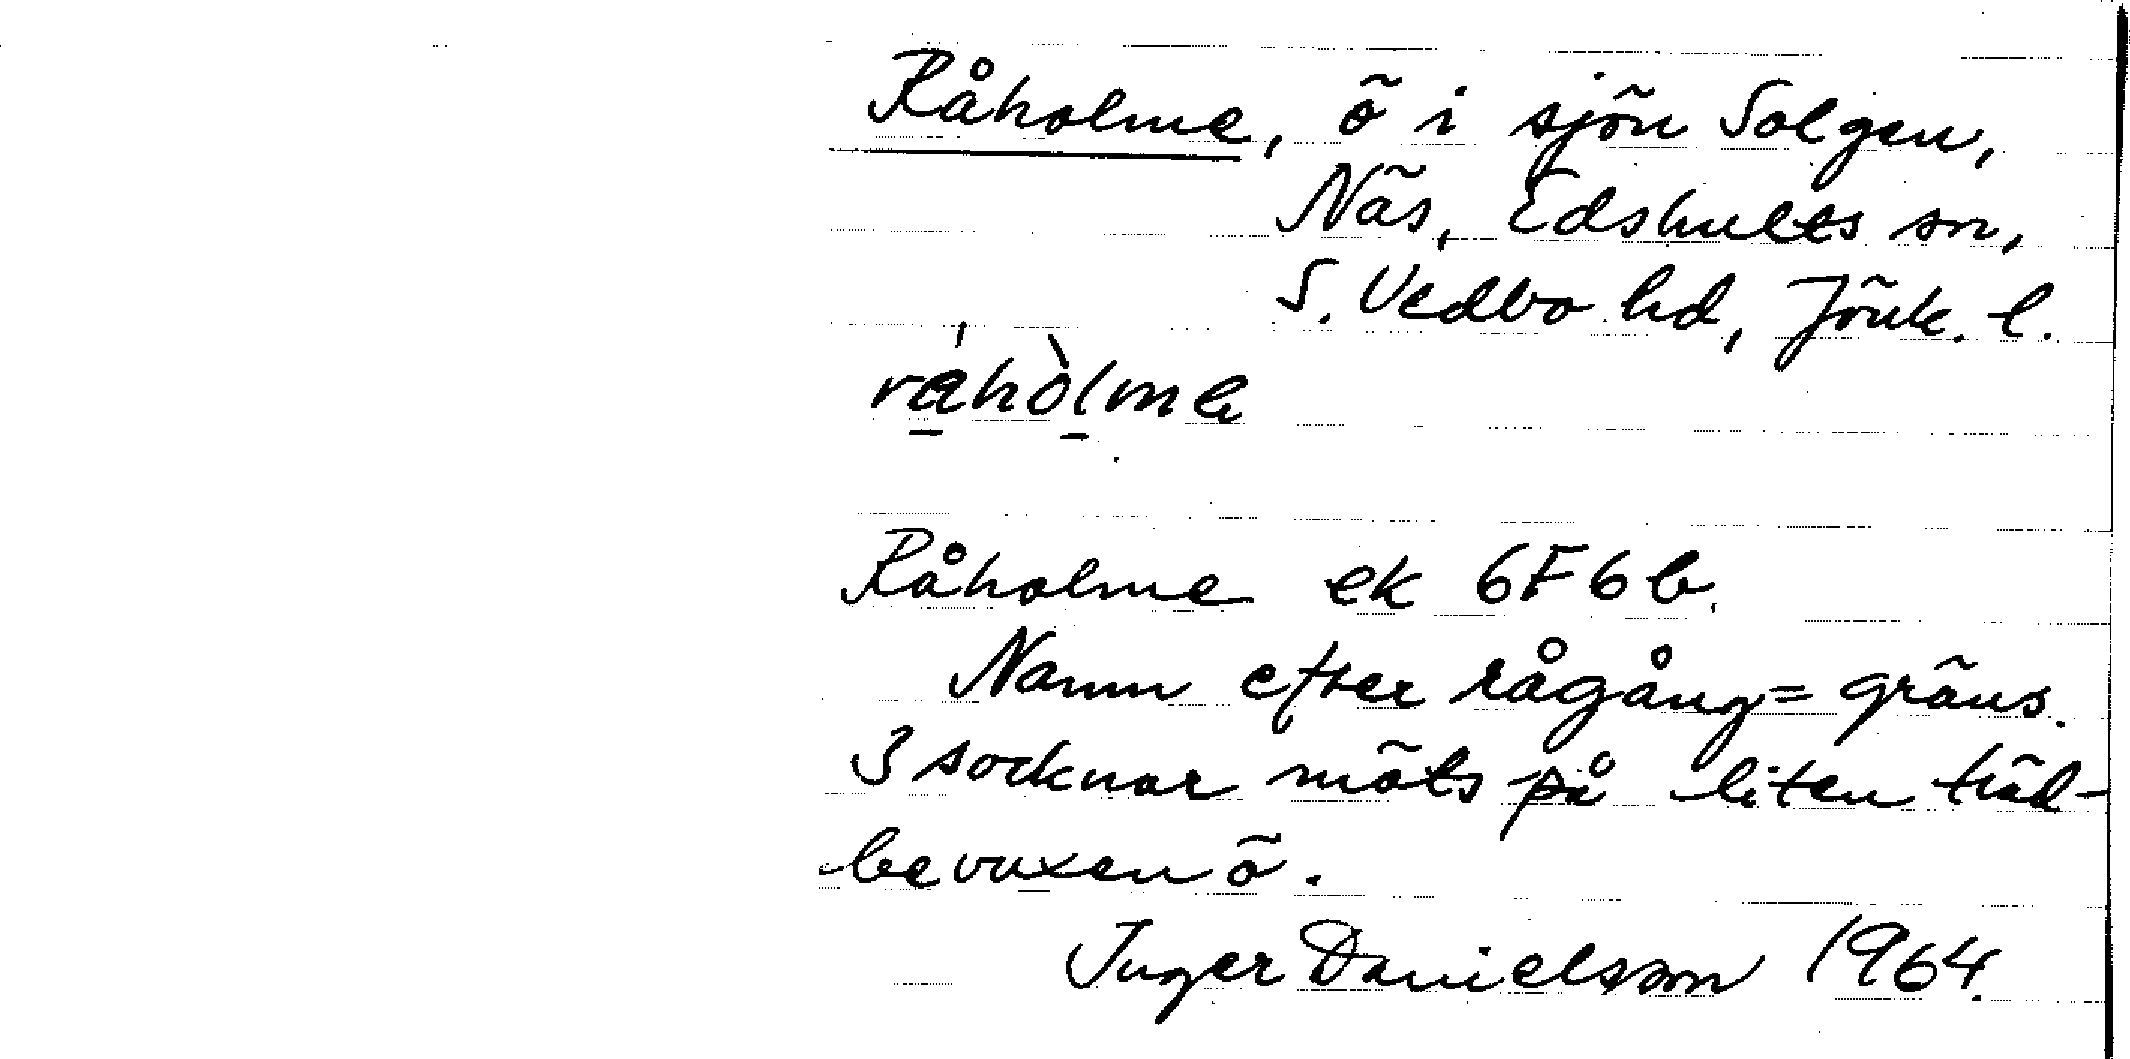 Råholme, ö i sjön Solgen,
Näs, Edshults sn,
S. Vedbo hd, Jönk. l.
råhòlme
Råholme ek 6F6b.
Namn efter rågång = gräns.
3 socknar möts på liten träd-
bevuxen ö.
Inger Danielsson 1964.